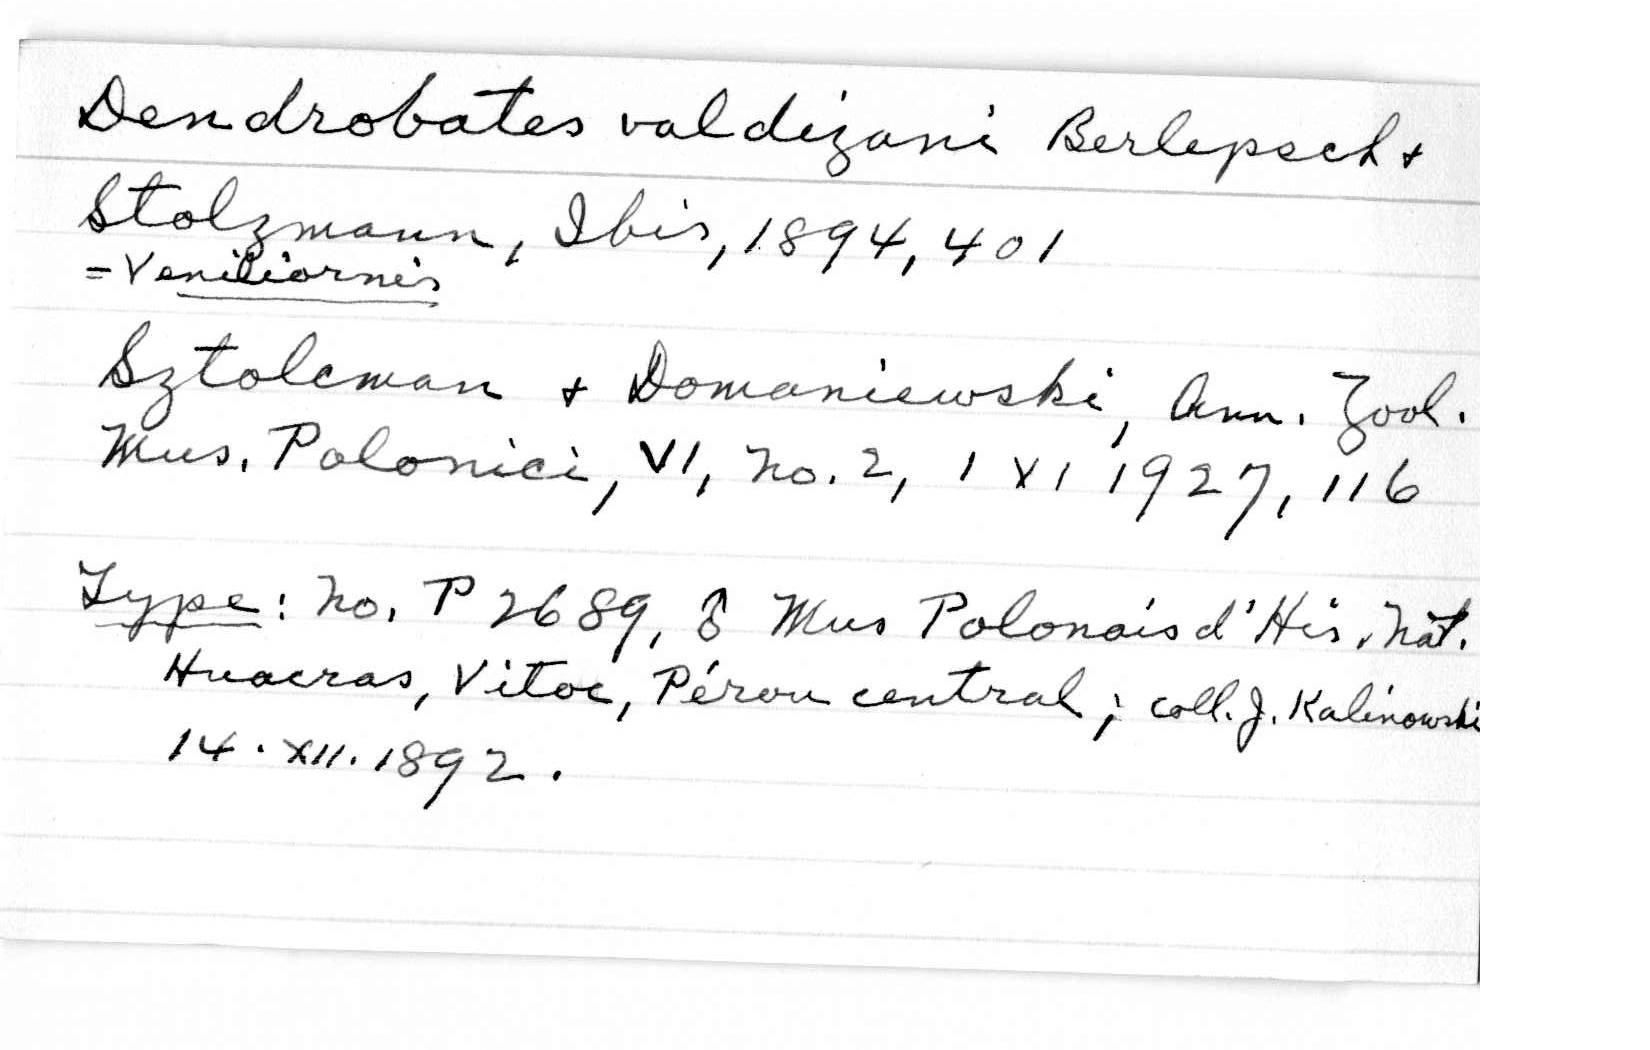 Dendrobates valdizani Berlepsch +
Stolzmann, Ibis, 1894, 401
= Veniliornis
Sztolcman + Domaniewski, Ann. Zool.
Mus. Polonici, VI, No. 2, 1 XI 1927, 116
Type: No. P 2689, ♂ Mus Polonais d'His. Nat.
Huacras, Vitoc, Pérou central; coll. J. Kalinowski
14. XII. 1892.